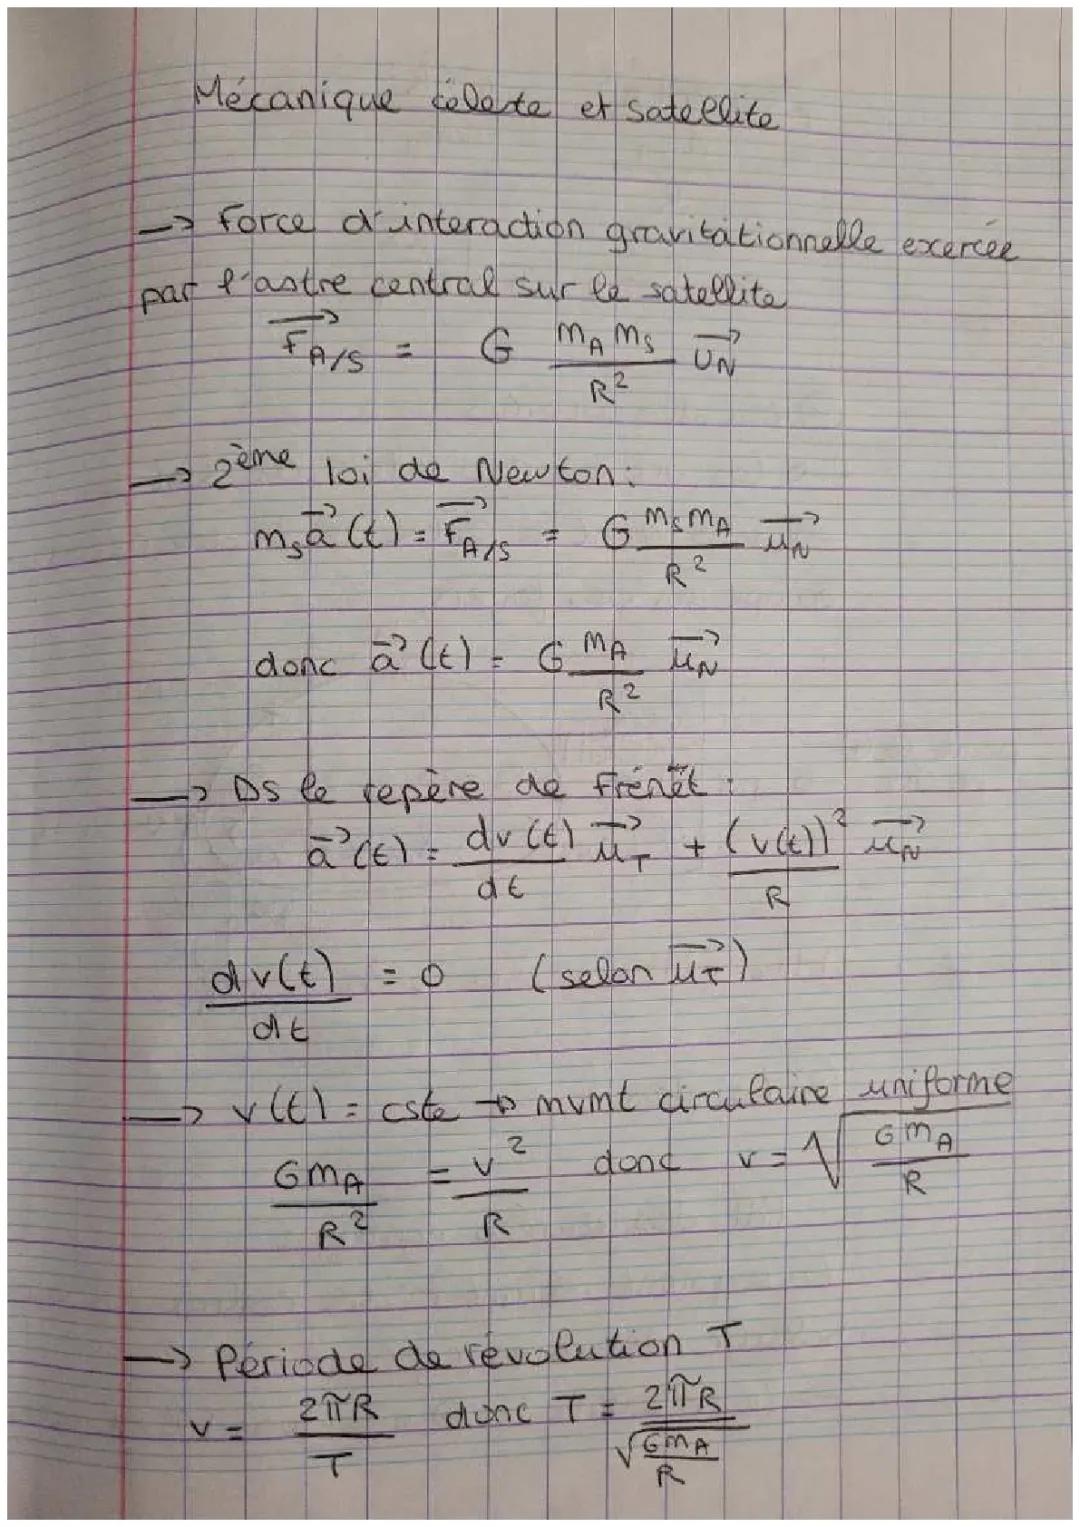 Mécanique céleste et satellite
→ Force d'interaction gravitationnelle exercée
par l'astre central sur le satellite
$\vec{F_{A/S}} = G \frac{m_A m_S}{R^2} \vec{U_N}$
→ 2ème loi de Newton:
$m_S \vec{a}(t) = \vec{F_{A/S}} = G \frac{m_S m_A}{R^2} \vec{u_N}$
donc $\vec{a}(t) = G \frac{m_A}{R^2} \vec{u_N}$
→ Ds le repère de Frénet :
$\vec{a}(t) = \frac{dv(t)}{dt} \vec{u_T} + \frac{(v(t))^2}{R} \vec{u_N}$
$\frac{dv(t)}{dt} = 0$ (selon $\vec{u_T}$)
→ v(t) = cste → mvmt circulaire uniforme
$\frac{Gm_A}{R^2} = \frac{v^2}{R}$ donc $v = \sqrt{\frac{Gm_A}{R}}$
→ Période de révolution T
$v = \frac{2\pi R}{T}$ donc $T = \frac{2\pi R}{\sqrt{\frac{Gm_A}{R}}}$